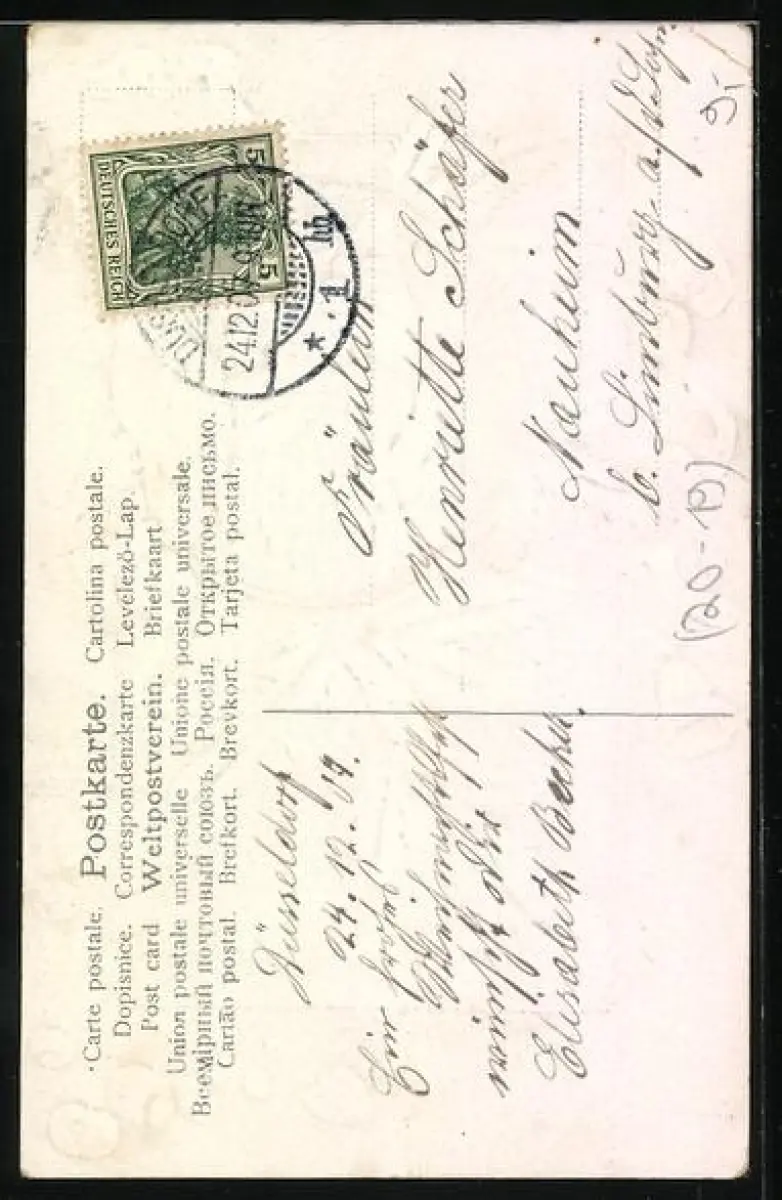 Carte postale. Postkarte. Cartolina postale.
Dopisnice. Correspondenzkarte Levelező-Lap.
Post card Weltpostverein. Briefkaart
Union postale universelle Unione postale universale.
Всемірный почтовый союзъ. Россія. Открытое письмо.
Cartão postal. Brefkort. Brevkort. Tarjeta postal.
DEUTSCHES REICH
5 5
24.12.07
* 1 hh
Düsseldorf
24.12.07.
Ein frohes
Weihnachtsfest
wünscht Dir
Elisabeth
Fräulein
Henriette Schäfer
Nauheim
b. Limburg a/d Lahn
(20-12)
9,-